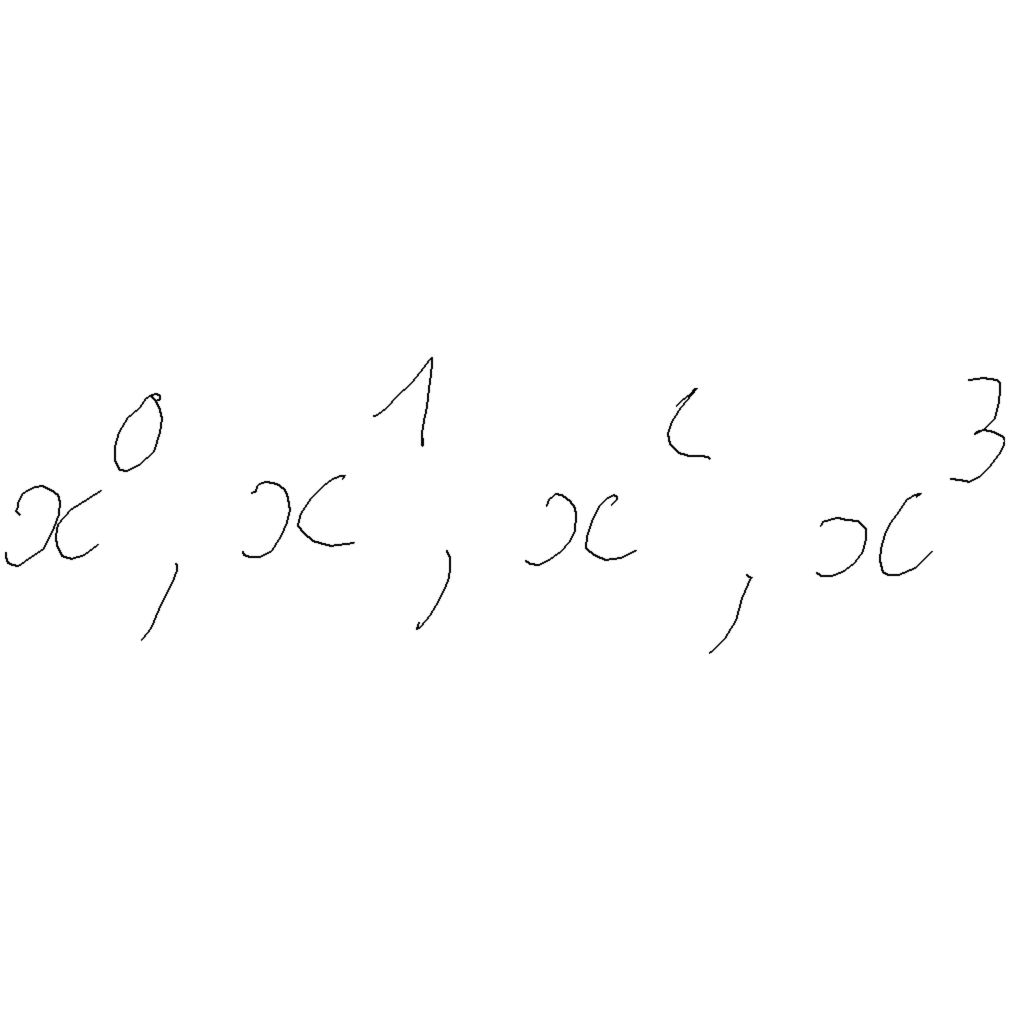 x⁰, x¹, xᶜ, x³